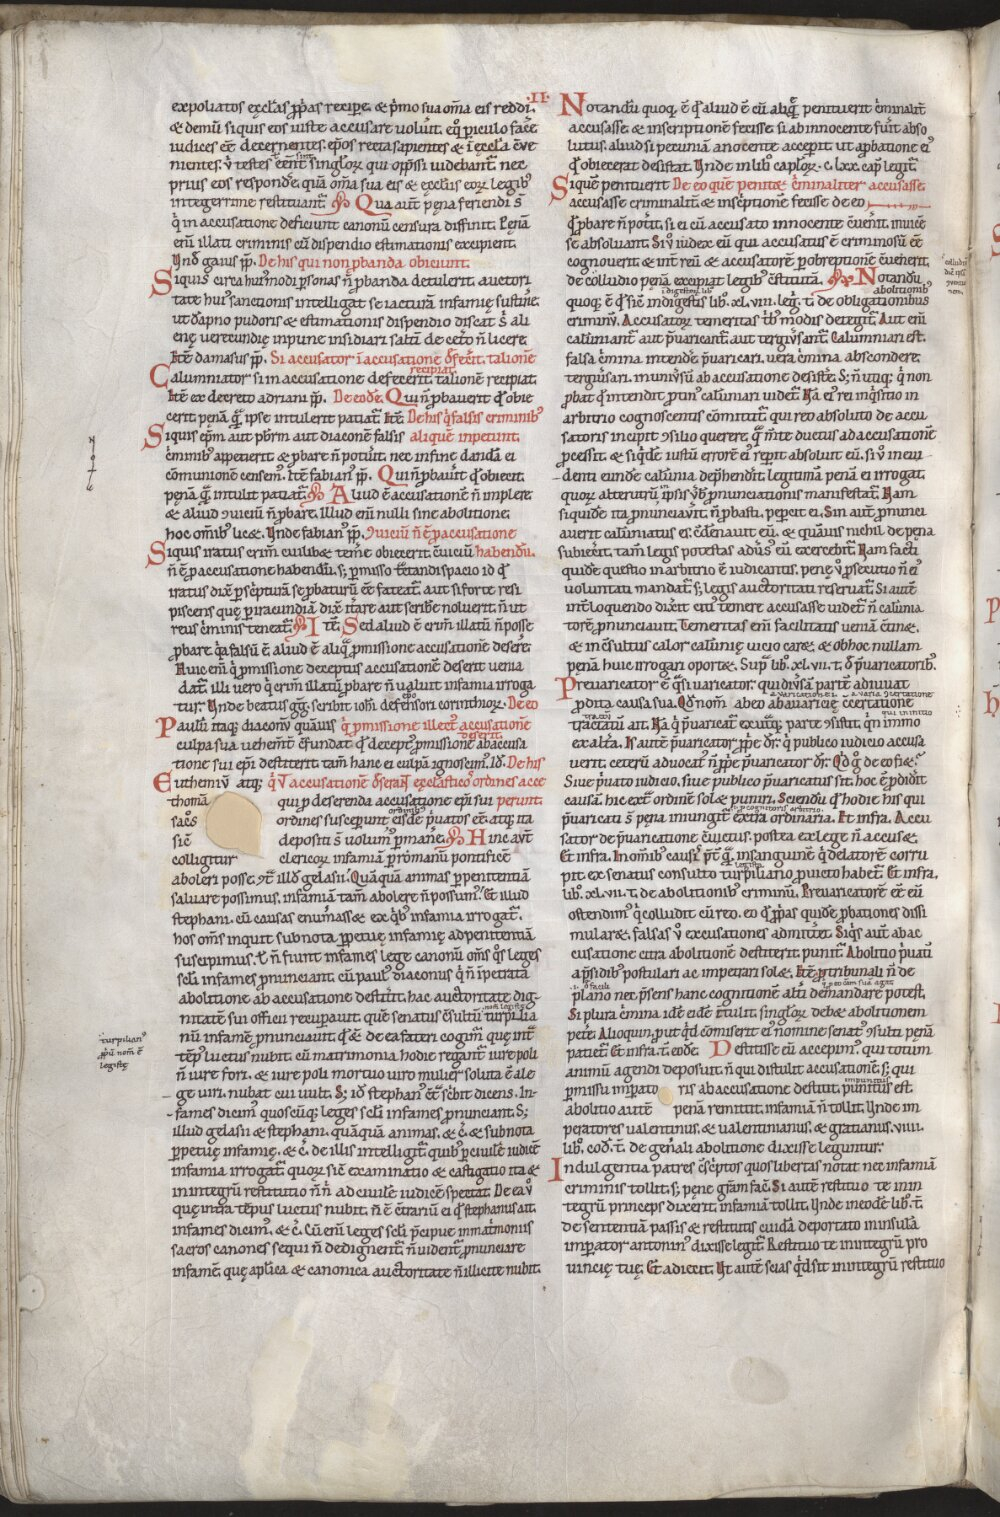 ·II·
expoliatos ęccl̄as p̄pas recipe. & p̄mo sua om̄a eis reddi.
& demū siquis eos iuste accusare voluit. eq̄ periculo face
iudices eē decernentes. ep̄os recta sapientes & ī eccl̄a cōve
nientes. & testes eēnt singloꝝ qui opp̄ssi uidebant᷑. nec
prius eos respondē. quā om̄a sua eis & ęccl̄iis eoꝝ legibꝰ
integerrime restituant᷑. Qua aut̄ pęna feriendi s̄
q̄ in accusatione deficiunt canonū censura diffinit. Pęnā
eni illati criminis cū dispendio estimationis excipient.
Vnd̄ gaius pp̄. De his qui non p̄banda obiciunt.
Siquis circa huiꝰmodi personas n̄ p̄banda detulerit. auctori
tate huiꝰ sanctionis intelligat se iacturā infamię sustine.
ut dāpno pudoris & estimationis dispendio discat s̄ ali
enę verecundię inpune insidiari saltū de cet̄o n̄ licere.
Itē damasus pp̄. Si accusator ī accusatione defec̄it. talionē
recipiat.
Calumniator si in accusatione defecerit. talionē recipiat.
Itē ex decreto adriani pp̄. De eodē. Qui n̄ p̄bauerit qd̄ obie
cerit. penā quā ipse intulerit patiat᷑. Itē De his q̄ falsis criminibꝰ
Siquis ep̄m aut p̄brm aut diaconē falsis aliquē inpetunt.
c̄minibꝰ appetierit & pbare n̄ potuit. nec infine dandā ei
cōmunionē censemꝰ. Itē fabianꝰ pp̄. Qui n̄ pbauit qd̄ obiecit.
pęnā quā intulit patiat᷑. Aliud ē accusationē n̄ implere
& aliud ꝯuiciū n̄ pbare. Illud eni nulli sine abolitione.
hoc omibꝰ licet. Vnde fabianꝰ pp̄. ꝯuiciū n̄ ē p accusatione
Siquis iratus crim̄ cuilibet tem̄e obiecerit. cōuiciū habendū.
n̄ ē p accusatione habendū. s; pmisso tractandi spacio id qd̄
iratus dixit p sc̄pturā se pbaturū eē fateat᷑. aut si forte resi
piscens quę p iracundiā dix̄ iterare aut scribe noluerit. n̄ ut
reus c̄minis teneat᷑. Itē. Sed aliud ē crim̄ illatū n̄ posse
pbare. qa falsū ē. aliud ē aliqua pmissione accusationē desere.
Huic eni q̄ pmissione deceptus accusationē deserit venia
dat᷑. illi vero q̄ crim̄ illatū pbare n̄ ualuit infamia irroga
tur. Vnde beatus gḡ. scribit iohi defensori corinthioꝝ. De eo
Paulū itaq; diaconū quāuis q̄ pmissione illectꝰ accusationē
deserit.
culpa sua uehement̄ c̄fundat qd̄ deceptꝰ pmissione ab accusa
tione sui epi destiterit. tam̄ hanc ei culpā ignoscimꝰ. Id̄. De his
Euthemiū atq; q̄ ut accusationē deserāt ęccl̄asticoꝰ ordines acce
thomā qui p deserenda accusatione epi sui perunt.
sac̄os ordines susceperunt. eisdē p̄uatos eē. atq; ita
sic̄ depositi s̄ volumꝰ pmanē. Hinc aut̄
colligitur clericoꝝ infamiā p romanū pontificē
aboleri posse. ꝯt̄ illd̄ gelasii. Quāquā animas p penitentiā
saluare possimus. infamiā tam̄ abolere n̄ possumꝰ. Et illud
stephani. cū causas enum̄asset ex qbꝰ infamia irrogat᷑.
hos om̄s inquit subnota p̄petuę infamię ad penitentiā
suscipimus. & n̄ fiunt infames lege canonū om̄s qs̄ leges
sc̄li infames pnunciant. cū paulꝰ diaconus q̄ n̄ īpetrata
abolitione ab accusatione destitit. hac auctoritate dig-
nitatē sui officii recuperauit. quē senatus c̄sultū turpilia
nū infamē pnunciauit. qd̄ & de ea fateri cogimꝰ. quę int̄
tēpꝰ luctus nubit. cū matrimonia hodie regant᷑ iure poli
n̄ iure fori. & iure poli mortuo uiro mulier soluta ē ale
ge uiri. nubat cui uult. S; id̄ stephanꝰ eēt sc̄bit dicens. In-
fames dicimꝰ quoscūq; leges sc̄li infames pnunciant. S;
illud gelasii & stephani. quāquā animas. & c̄. & subnota
p̄petuę infamię. & c̄. de illis intelligit᷑ quibꝰ p ciuilē iudicē
infamia irrogat᷑. quoꝝ sic̄ examinatio & castigatio ita &
in integrū restitutio n̄n̄ ad ciuilē iudicē spectat. De ea v̄
quę intra tēpus luctus nubit. n̄ ē c̄trariū ei qd̄ stephanus ait.
infames dicimꝰ. & c̄. Cū eni leges sc̄li p̄cipue in matimoniis
sacros canones sequi n̄ dedignent᷑. n̄ vident᷑ pnunciare
infamē. quę aplica & canonica auctoritate n̄ illicite nubit.
turpilianꝰ
pp̄ū nom̄ ē
legistę
Notandū quoq; ē qd̄ aliud ē cū aliquē penituerit c̄minalit̄
accusasse. & inscriptionē fecisse. si ab innocente fuit abso
lutus. aliud si pecuniā anocente accepit ut apbatione eiꝰ
qd̄ obiecerat desistat. Vnde in libꝰ capl̄oꝝ. c. lxx. cap̄ legit᷑.
Siquē penituerit De eo quē penitet c̄minaliter accusasse.
accusasse criminalit̄ & insc̄ptionē fecisse de eo
qd̄ pbare n̄ potit. si ei cū accusato innocente c̄uenit. inuicē
se absoluant. Si v̄ iudex eū qui accusatus ē criminosū eē
cognouerit & int̄ reū & accusatorē p obreptionē c̄uenerit.
de colludio penā excipiat legibꝰ c̄stitutā. Notandū
ī digestoꝝ lib̄ abolitionibꝰ
quoq; ē qd̄ sic̄ in digestis lib. xl. viii. leg̅. t̄. de obligationibus
criminū. Accusatoꝝ temeritas tbꝰ modis detegit᷑. Aut eni
calūniant᷑. aut p̄uaricant᷑. aut tergiv̄sant᷑. Calumniari est.
falsa c̄mina intende. p̄uaricari. uera c̄mina abscondere.
tergiv̄sari. in univ̄sū ab accusatione desiste. S; n̄ utiq; q̄ non
pbat qd̄ intendit ptinꝰ calūniari uidet᷑. Nā eiꝰ rei inqsitio in
arbitrio cognoscentis cōmittit᷑. qui reo absoluto de accu
satoris incipit ꝯsilio querere. qua mente ductus ad accusationē
pcessit. & siqdē iustū errorē eiꝰ repit absoluit eū. si v̄ in eui
denti eundē calūnia dep̄hendit. legitimā penā ei irrogat.
quoꝝ alterutrū ipsis v̄bis pnunciationis manifestat᷑. Nam
siquidē ita pnunciauit. n̄ pbasti. pepcit ei. Sin aut̄ pnunci
auerit calūniatus es. c̄dēnauit eū. & quāuis nichil de pena
subiecerit. tam̄ legis potestas adūsꝰ eū exercebit᷑. Nam facti
quidē questio in arbitrio ē iudicantis. penę v̄ psecutio n̄ eiꝰ
voluntati mandat᷑. s; legis auctoritati reseruat᷑. Si autē
int̄loquendo dixerit eiū temere accusasse uidet᷑. n̄ calūnia
torē pnunciauit. Temeritas eni facilitatis ueniā c̄tinet.
& inc̄sultus calor calūnię uicio caret. & ob hoc nullam
pęnā huic irrogari oportet. Sup̄ lib̄. xl. vii. t̄. d̄ p̄uaricatoribꝰ.
Prevaricator ē q̄si uaricator. qui div̄sā partē adiuuat
pdita causa sua. Qd̄ nom̄ abeo ab auaricię ꝯcertatione
tractatū ait. Nā q̄ p̄uaricat᷑ ex utraq; parte ꝯsistit. qn̄ immo
ex altera. Is autē p̄uaricator pp̄e dr̄. q̄ publico iudicio accusa
uerit. ceterū aduocatꝰ n̄ pp̄e p̄uaricator dr̄. Qd̄ g̊ de eo fiet.
Siue p̄uato iudicio. siue publico p̄uaricatus sit. hoc ē pdidit
causā. hic extra ordinē solet puniri. Sciendū qd̄ hodie his qui
p̄uaricati s̄ pena iniungit᷑ extra ordinaria. Et infra. Accu
sator de p̄uaricatione c̄uictus. postea ex lege n̄ accuset.
Et infra. In omibꝰ causis p̄t̄ quā insanguine q̄ delatorē corru
pit. ex senatus consulto turpiliano p uicto habet᷑. Et infra.
lib̄. xl. vii. t̄. de abolitionibꝰ criminū. Prevaricatorē eē eū
ostendimꝰ q̄ colludit cū reo. eo qd̄ pp̄as quidē pbationes dissi
mularet. falsas v̄ excusationes admittet. Siqs aut̄ abac
cusatione citra abolitionē destiterit punit᷑. Abolitio p̄uati
ap̄sidibꝰ postulari ac impetrari solet. Itē p tribunali n̄ de
plano nec p̄sens hanc cognitionē alii demandare potest.
Si plura c̄mina idē eidē tulit. singloꝝ debet abolitionem
petere. Alioquin. put qd̄ comiserit eiꝰ nomine senatꝰ ꝯsulti penā
patiet᷑. Et infra. t̄. eodē. Destitisse eū accepimꝰ. qui totum
animū agendi deposuit. n̄ qui distulit accusationē. s; qui
pmissu impato ris ab accusatione destitit. punitus est.
abolitio autē penā remittit. infamiā n̄ tollit. Vnde im
peratores ualentinus. & ualentinianus. & gratianus. viiii.
lib̄. cod̄. t̄. de gen̄ali abolitione dixisse leguntur.
Indulgentia patres c̄scptos quos libertas notat. nec infamiā
criminis tollit. s; penę gr̄am facit. Si autē restituo te in in
tegrū princeps dixerit. infamiā tollit. Vnde in eodē lib̄. t̄.
de sententiā passis & restitutis cuidā deportato in insulā
imperator antoninꝰ dixisse legit᷑. Restituo te in integrū pro
uincię tuę. Et adiecit. Vt autē scias qd̄ sit in integrū restituo